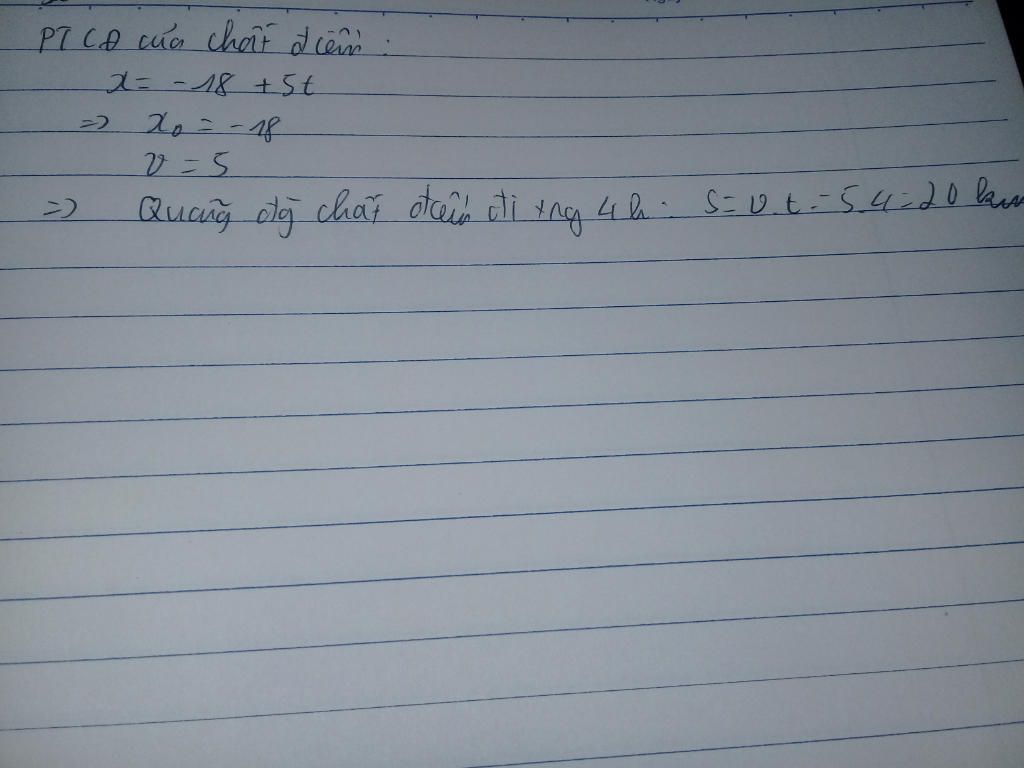 PTCĐ của chất điểm :
x = -18 + 5t
=> x₀ = -18
v = 5
=> Quãng đg chất điểm đi trg 4h : S = v.t = 5.4 = 20 km